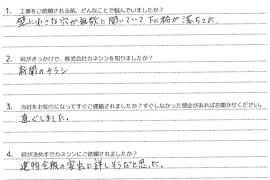 1. 工事をご依頼される前、どんなことで悩んでいましたか?
壁に小さな穴が無数に開いていて下に粉が落ちてた。
2. 何がきっかけで、株式会社カネシンを知りましたか?
新聞のチラシ
3. 当社をお知りになってすぐご連絡されましたか?すぐしなかった理由があればお聞かせください。
直ぐしました。
4. 何が決め手でカネシンにご依頼されましたか?
建物全般の害虫に詳しそうだと思った。